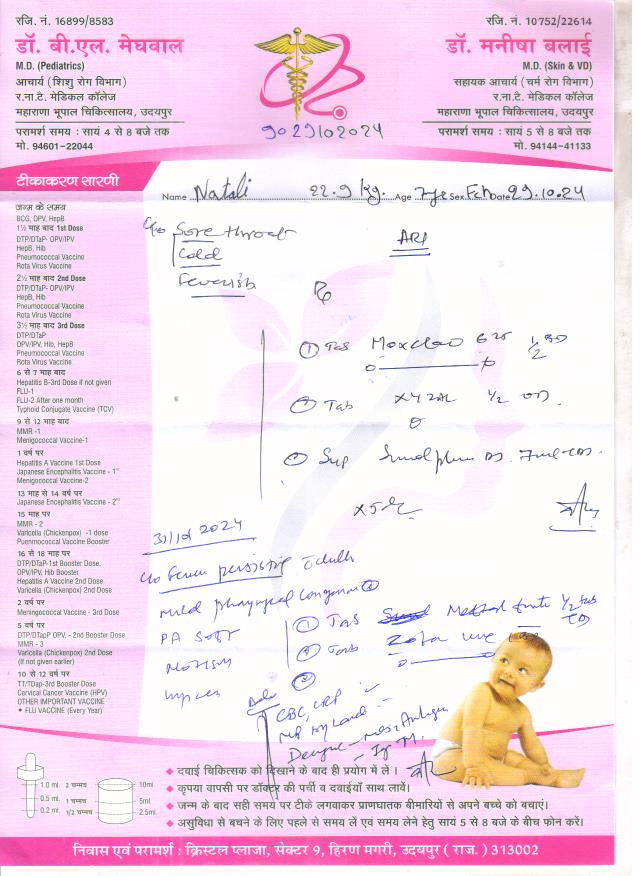 रजि. नं. 16899/8583
डॉ. बी.एल. मेघवाल
M.D. (Pediatrics)
आचार्य (शिशु रोग विभाग)
र.ना.टै. मेडिकल कॉलेज
महाराणा भूपाल चिकित्सालय, उदयपुर
परामर्श समय : सायं 4 से 8 बजे तक
मो. 94601-22044
रजि. नं. 10752/22614
डॉ. मनीषा बलाई
M.D. (Skin & VD)
सहायक आचार्य (चर्म रोग विभाग)
र.ना.टै. मेडिकल कॉलेज
महाराणा भूपाल चिकित्सालय, उदयपुर
परामर्श समय : सायं 5 से 8 बजे तक
मो. 94144-41133
9029102024
Name Natali 22.9 kg. Age 7yr Sex Date 29.10.24
टीकाकरण सारणी
जन्म के समय
BCG, OPV, HepB
1½ माह बाद 1st Dose
DTP/DTaP- OPV/IPV
HepB, Hib
Pneumococcal Vaccine
Rota Virus Vaccine
2½ माह बाद 2nd Dose
DTP/DTaP- OPV/IPV
HepB, Hib
Pneumococcal Vaccine
Rota Virus Vaccine
3½ माह बाद 3rd Dose
DTP/DTaP
OPV/IPV, Hib, HepB
Pneumococcal Vaccine
Rota Virus Vaccine
6 से 7 माह बाद
Hepatitis B-3rd Dose if not given
FLU-1
FLU-2 After one month
Typhoid Conjugate Vaccine (TCV)
9 से 12 माह बाद
MMR -1
Menigococcal Vaccine-1
1 वर्ष पर
Hepatitis A Vaccine 1st Dose
Japanese Encephalitis Vaccine - 1st
Menigococcal Vaccine-2
13 माह से 14 वर्ष पर
Japanese Encephalitis Vaccine - 2nd
15 माह पर
MMR - 2
Varicella (Chickenpox) -1 dose
Puenmococcal Vaccine Booster
16 से 18 माह पर
DTP/DTaP-1st Booster Dose,
OPV/IPV, Hib Booster
Hepatitis A Vaccine 2nd Dose
Varicella (Chickenpox) 2nd Dose
2 वर्ष पर
Meningococcal Vaccine - 3rd Dose
5 वर्ष पर
DTP/DTapP OPV, - 2nd Booster Dose
MMR - 3
Varicella (Chickenpox) 2nd Dose
(If not given earlier)
10 से 12 वर्ष पर
TT/TDap-3rd Booster Dose
Cervical Cancer Vaccine (HPV)
OTHER IMPORTANT VACCINE
• FLU VACCINE (Every Year)
c/o Sore throat
Cold
Feverish
ARI
① Tab Moxclav 625 ½ BD
② Tab Xyzal ½ OD
x5d
31/10/2024
c/o Fever persisting
Mild pharyngeal
PA Soft
① Tab ½ tab
② Tab
CBC, CRP
Dengue - NS1 Antigen
IgM
1.0 ml. 2 चम्मच 10ml.
0.5 ml. 1 चम्मच 5ml.
0.2 ml. 1/2 चम्मच 2.5ml.
◆ दवाई चिकित्सक को दिखाने के बाद ही प्रयोग में लें ।
◆ कृपया वापसी पर डॉक्टर की पर्ची व दवाईयाँ साथ लावें।
◆ जन्म के बाद सही समय पर टीके लगवाकर प्राणघातक बीमारियों से अपने बच्चे को बचाएं।
◆ असुविधा से बचने के लिए पहले से समय लें एवं समय लेने हेतु सायं 5 से 8 बजे के बीच फोन करें।
निवास एवं परामर्श : क्रिस्टल प्लाजा, सेक्टर 9, हिरण मगरी, उदयपुर ( राज. ) 313002